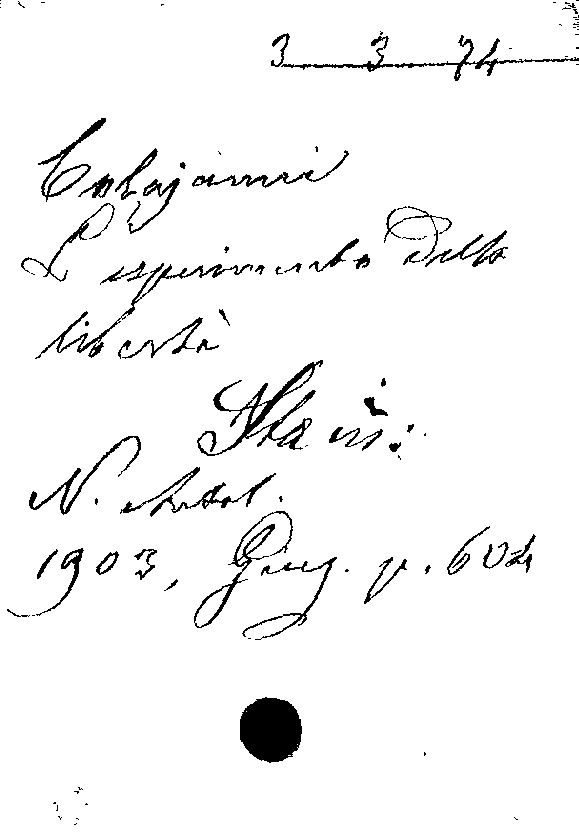 3 3 74
Colajanni
L'esperimento della
libertà
N. Antol.
1903, Giug. p. 604